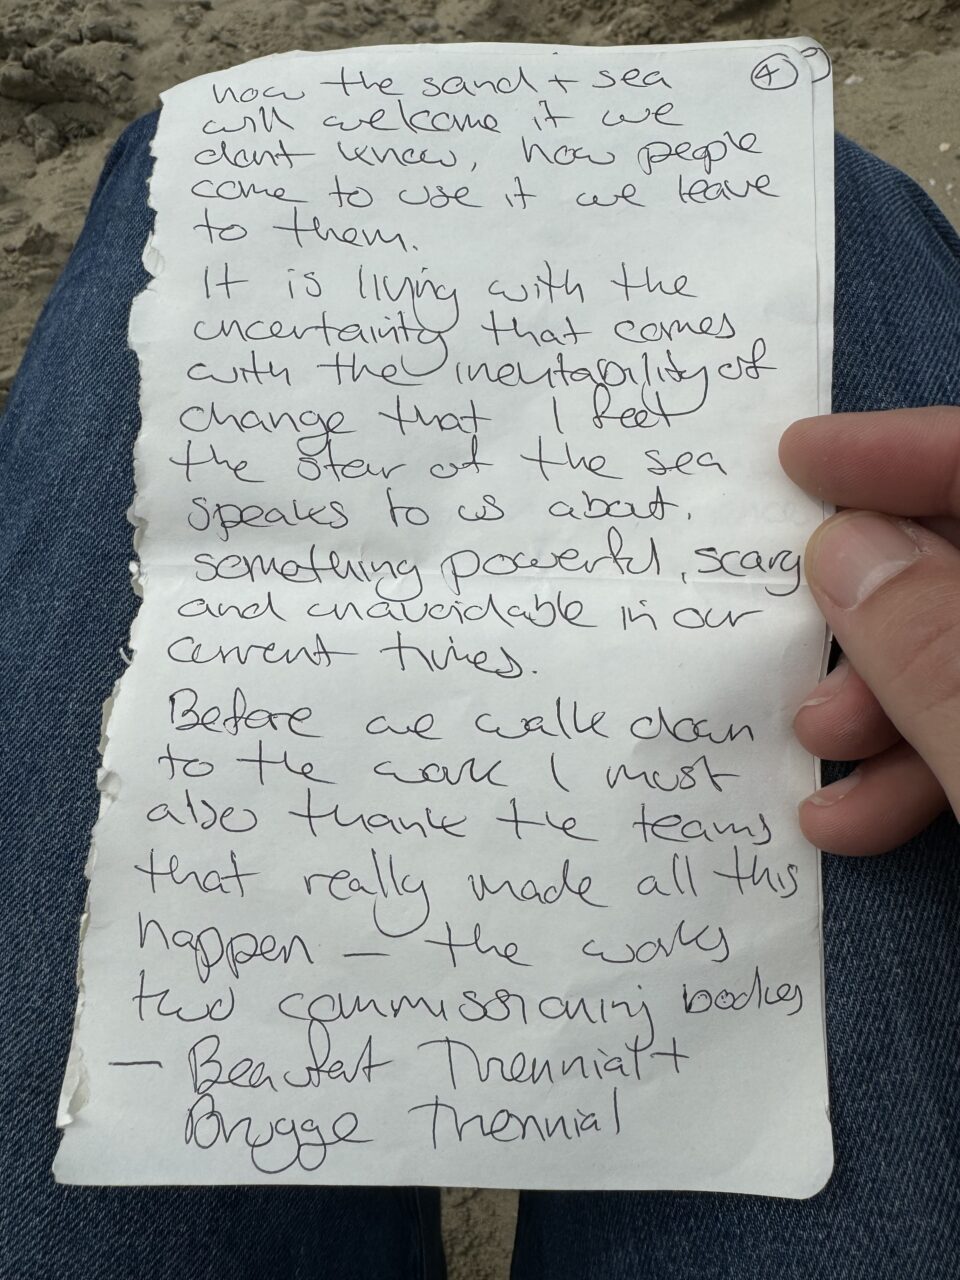 ④
how the sand + sea
will welcome it we
dont know, how people
come to use it we leave
to them.
It is living with the
uncertainty that comes
with the inevitability of
change that I feel
the star of the sea
speaks to us about.
something powerful, scary
and unavoidable in our
current times.
Before we walk down
to the work I must
also thank the teams
that really made all this
happen — the works
two commissioning bodies
— Beaufort Triennial +
Brugge Triennial